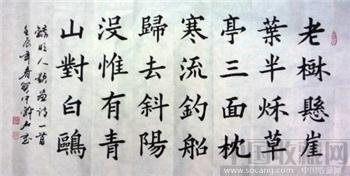 老樹懸崖
葉半秌草
亭三面枕
寒流釣船
歸去斜陽
没惟有青
山對白鷗
錄明人題畫詩一首
壬辰年春
中国收藏网
www.socang.com